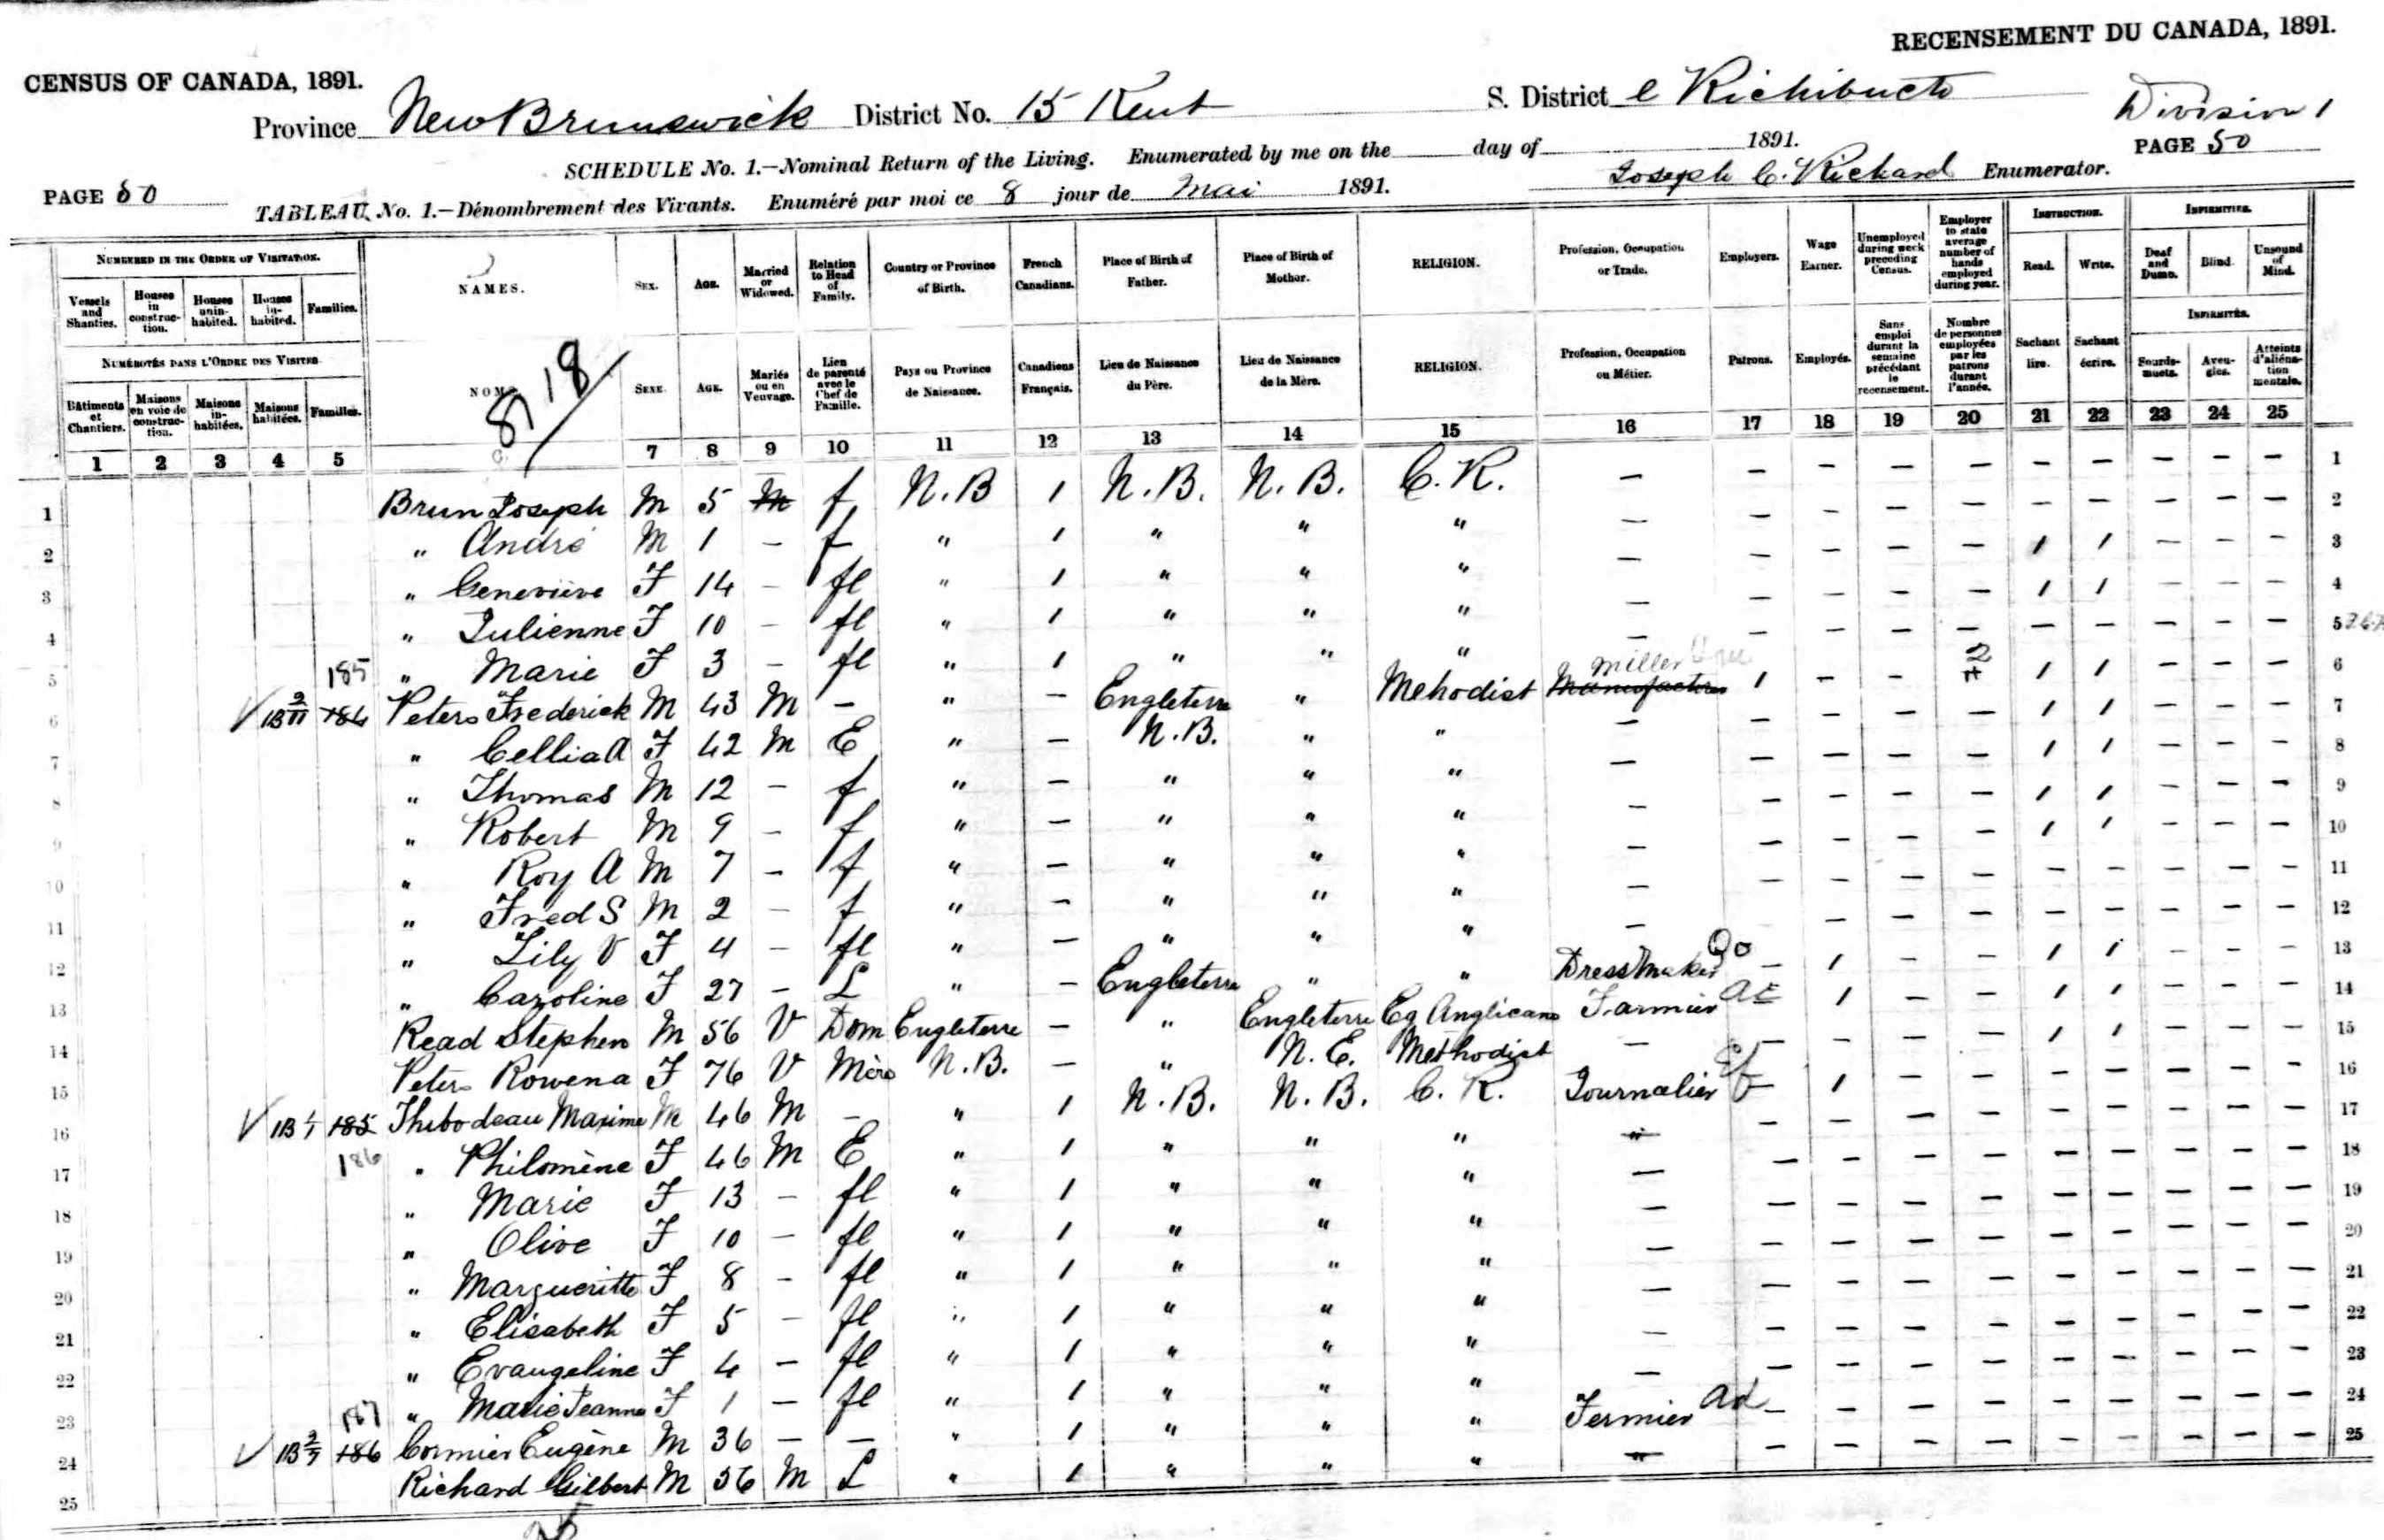 RECENSEMENT DU CANADA, 1891.
CENSUS OF CANADA, 1891.
Province New Brunswick District No. 15 Kent S. District e Richibucto Division 1
SCHEDULE No. 1.—Nominal Return of the Living. Enumerated by me on the day of 1891. PAGE 50
PAGE 50 TABLEAU No. 1.—Dénombrement des Vivants. Enuméré par moi ce 8 jour de Mai 1891. Joseph C. Richard Enumerator.
NUMBERED IN THE ORDER OF VISITATION. NAMES. SEX. AGE. Married or Widowed. Relation to Head of Family. Country or Province of Birth. French Canadians. Place of Birth of Father. Place of Birth of Mother. RELIGION. Profession, Occupation or Trade. Employers. Wage Earner. Unemployed during week preceding Census. Employer to state average number of hands employed during year. INSTRUCTION. Read. Write. INFIRMITIES. Deaf and Dumb. Blind. Unsound of Mind.
Vessels and Shanties. Houses in construction. Houses uninhabited. Houses inhabited. Families.
NUMÉROTÉS DANS L'ORDRE DES VISITES. NOMS. SEXE. AGE. Mariés ou en Veuvage. Lien de parenté avec le Chef de Famille. Pays ou Province de Naissance. Canadiens Français. Lieu de Naissance du Père. Lieu de Naissance de la Mère. RELIGION. Profession, Occupation ou Métier. Patrons. Employés. Sans emploi durant la semaine précédant le recensement. Nombre de personnes employées par les patrons durant l'année. Sachant lire. Sachant écrire. INFIRMITÉS. Sourds-muets. Aveugles. Atteints d'aliénation mentale.
Bâtiments et Chantiers. Maisons en voie de construction. Maisons inhabitées. Maisons habitées. Familles.
1 2 3 4 5 7 8 9 10 11 12 13 14 15 16 17 18 19 20 21 22 23 24 25
1 Brun Joseph M 5 M f N.B 1 N.B. N.B. C.R. — — — — — — — — — — 1
2 " André M 1 — f " 1 " " " — — — — — — — — — — 2
3 " Geneviève F 14 — fl " 1 " " " — — — — — 1 1 — — — 3
4 " Julienne F 10 — fl " 1 " " " — — — — — 1 1 — — — 4
5 " Marie F 3 — fl " 1 " " " — — — — — — — — — — 5
6 1B 2/11 185 184 Peters Frederick M 43 M — " — Engleterre " Mehodist Manufacturer Miller 1 — — 2 1 1 — — — 6
7 " Cellia A F 42 M E " — N.B. " " — — — — — 1 1 — — — 7
8 " Thomas M 12 — f " — " " " — — — — — 1 1 — — — 8
9 " Robert M 9 — f " — " " " — — — — — 1 1 — — — 9
10 " Roy A M 7 — f " — " " " — — — — — 1 1 — — — 10
11 " Fred S M 2 — f " — " " " — — — — — — — — — — 11
12 " Lily V F 4 — fl " — " " " — — — — — — — — — — 12
13 " Caroline F 27 — L " — Engleterre " " Dress Maker — 1 — — 1 1 — — — 13
14 Read Stephen M 56 V Dom Engleterre — " Engleterre Eg Anglicane Farmier — 1 — — 1 1 — — — 14
15 Peters Rowena F 76 V Mère N.B. — " N.E. Methodist — — — — — 1 1 — — — 15
16 1B 185 Thibodeau Maxime M 46 M — " 1 N.B. N.B. C.R. Journalier — 1 — — — — — — — 16
17 186 " Philomène F 46 M E " 1 " " " — — — — — — — — — — 17
18 " Marie F 13 — fl " 1 " " " — — — — — — — — — — 18
19 " Olive F 10 — fl " 1 " " " — — — — — — — — — — 19
20 " Margueritte F 8 — fl " 1 " " " — — — — — — — — — — 20
21 " Elisabeth F 5 — fl " 1 " " " — — — — — — — — — — 21
22 " Evangeline F 4 — fl " 1 " " " — — — — — — — — — — 22
23 " Marie Jeanne F 1 — fl " 1 " " " — — — — — — — — — — 23
24 187 186 Cormier Eugène M 36 — — " 1 " " " Fermier — — — — — — — — — 24
25 Richard Gilbert M 56 M L " 1 " " " — — — — — — — — — — 25